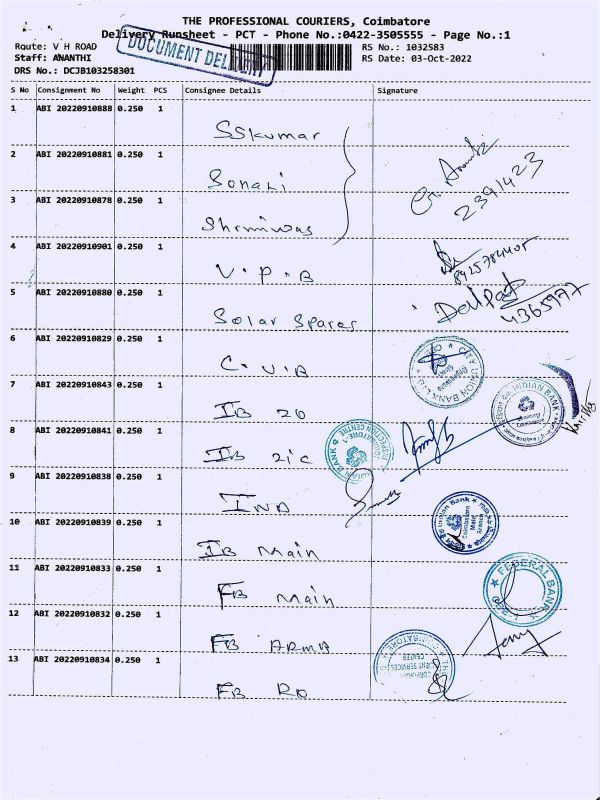 THE PROFESSIONAL COURIERS, Coimbatore
Delivery Runsheet - PCT - Phone No.:0422-3505555 - Page No.:1
Route: V H ROAD
RS No.: 1032583
Staff: ANANTHI
RS Date: 03-Oct-2022
DRS No.: DCJB103258301
DOCUMENT DELIVERY
S No Consignment No Weight PCS Consignee Details Signature
1 ABI 20220910888 0.250 1
SSkumar
2 ABI 20220910881 0.250 1
Sonali
2391423
3 ABI 20220910878 0.250 1
Shrinivas
4 ABI 20220910901 0.250 1
V.P.B
5 ABI 20220910880 0.250 1
Solar Spares
Dilip
4365977
6 ABI 20220910829 0.250 1
C.U.B
CITY UNION BANK LTD
7 ABI 20220910843 0.250 1
IB 26
INDIAN BANK
8 ABI 20220910841 0.250 1
IB 2ic
9 ABI 20220910838 0.250 1
IND
Indian Bank
Coimbatore
Main
Branch
10 ABI 20220910839 0.250 1
IB Main
11 ABI 20220910833 0.250 1
FB Main
FEDERAL BANK
12 ABI 20220910832 0.250 1
FB ARMA
13 ABI 20220910834 0.250 1
FB RO
COIMBATORE